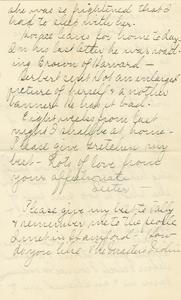 she was so frightened that I
had to sleep with her.
Horace leaves for home today.
In his last letter he was read-
ing Brown of Harvard —
Herbert sent out an enlarged
picture of herself & another
banner he had it bad.
Eight weeks from last
night I shall be at home —
Please give Gretchen my
best — Lots of love from
your affectionate
Sister —
Please give my best to
& remember me to the
in
do you like the